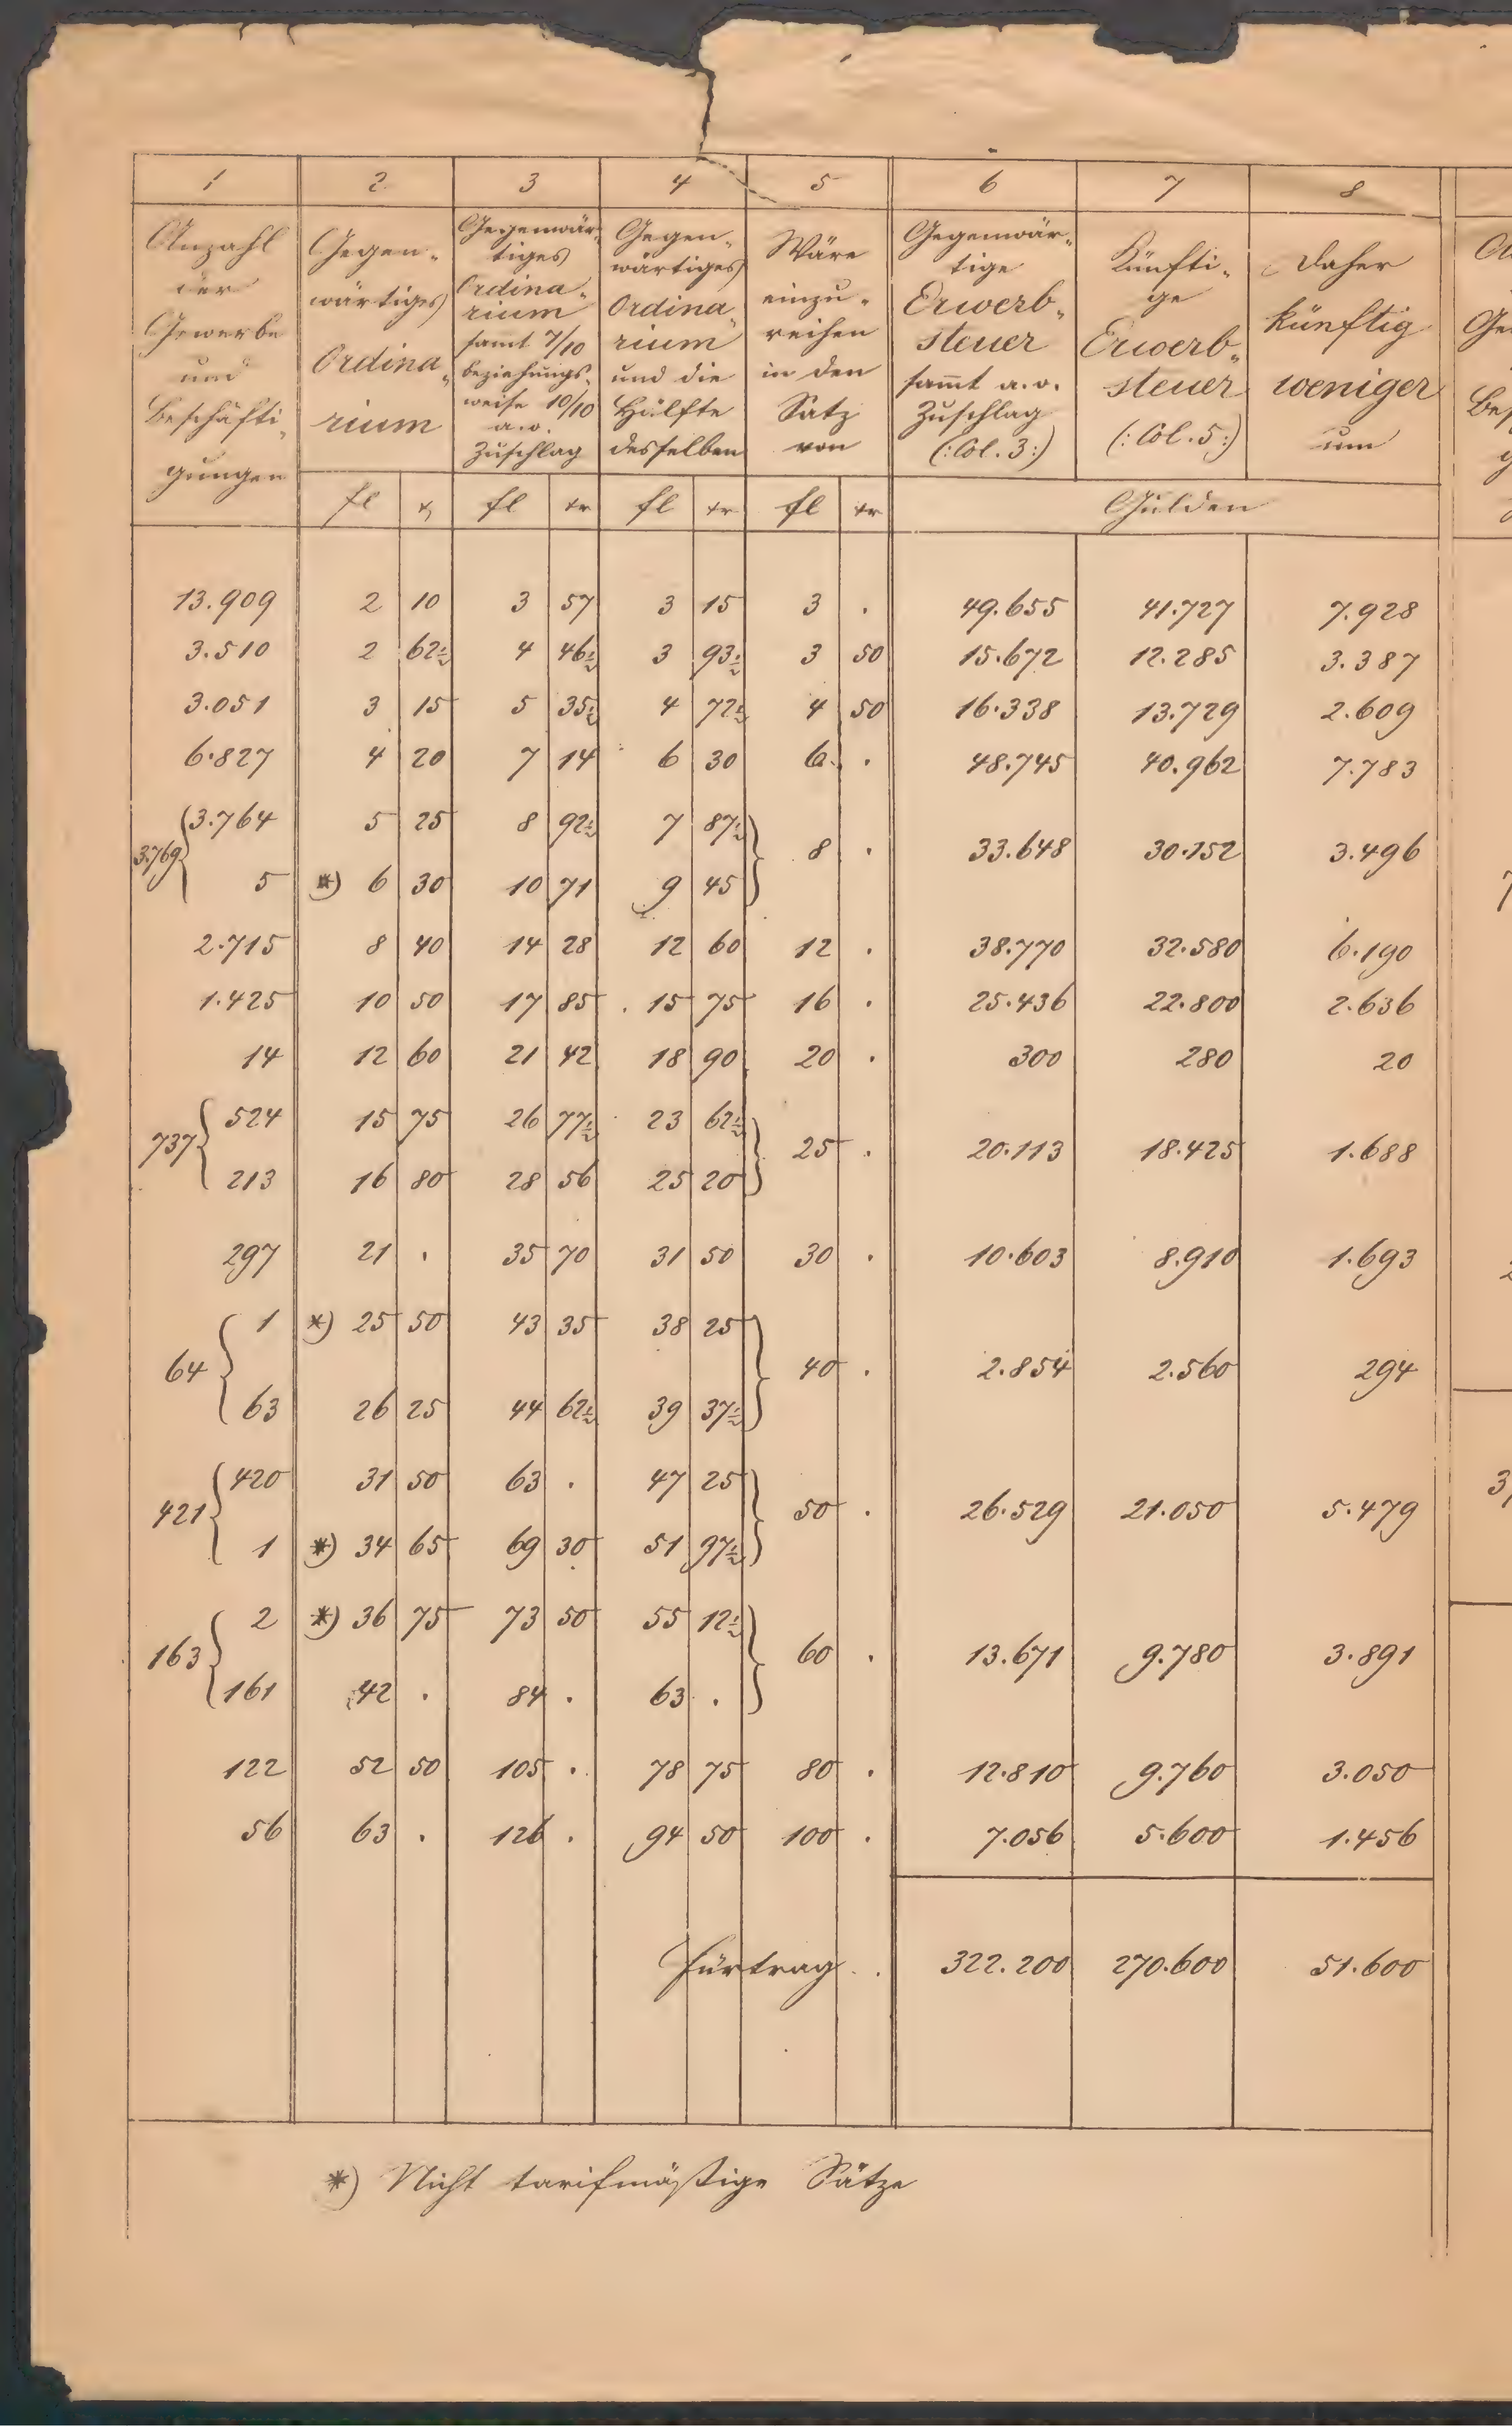 1 2 3 4 5 6 7 8
Anzahl der Gewerbe und Beschäfti- gungen
Gegen- wärtiges Ordina- rium
Gegenwär- tiges Ordina- rium samt 7/10 beziehungs- weise 10/10 a.o. Zuschlag
Gegen- wärtiges Ordina- rium und die Hälfte desselben
Wäre einzu- reihen in den Satz von
Gegenwär- tige Erwerb- steuer sammt a.o. Zuschlag (: Col. 3 :)
Künfti- ge Erwerb- steuer (: Col. 5 :)
Daher künftig weniger um
fl x fl xr fl xr fl xr Gulden
13.909 2 10 3 57 3 15 3 . 49.655 41.727 7.928
3.510 2 62½ 4 46½ 3 93½ 3 50 15.672 12.285 3.387
3.051 3 15 5 35½ 4 72½ 4 50 16.338 13.729 2.609
6.827 4 20 7 14 6 30 6 . 48.745 40.962 7.783
3.764 5 25 8 92½ 7 87½
3.769 8 . 33.648 30.152 3.496
5 *) 6 30 10 71 9 45
2.715 8 40 14 28 12 60 12 . 38.770 32.580 6.190
1.425 10 50 17 85 15 75 16 . 25.436 22.800 2.636
14 12 60 21 42 18 90 20 . 300 280 20
524 15 75 26 77½ 23 62½
737 25 . 20.113 18.425 1.688
213 16 80 28 56 25 20
297 21 . 35 70 31 50 30 . 10.603 8.910 1.693
1 *) 25 50 43 35 38 25
64 40 . 2.854 2.560 294
63 26 25 44 62½ 39 37½
420 31 50 63 . 47 25
421 50 . 26.529 21.050 5.479
1 *) 34 65 69 30 51 97½
2 *) 36 75 73 50 55 12½
163 60 . 13.671 9.780 3.891
161 42 . 84 . 63 .
122 52 50 105 . 78 75 80 . 12.810 9.760 3.050
56 63 . 126 . 94 50 100 . 7.056 5.600 1.456
Fürtrag . . 322.200 270.600 51.600
*) Nicht tarifmäßige Sätze